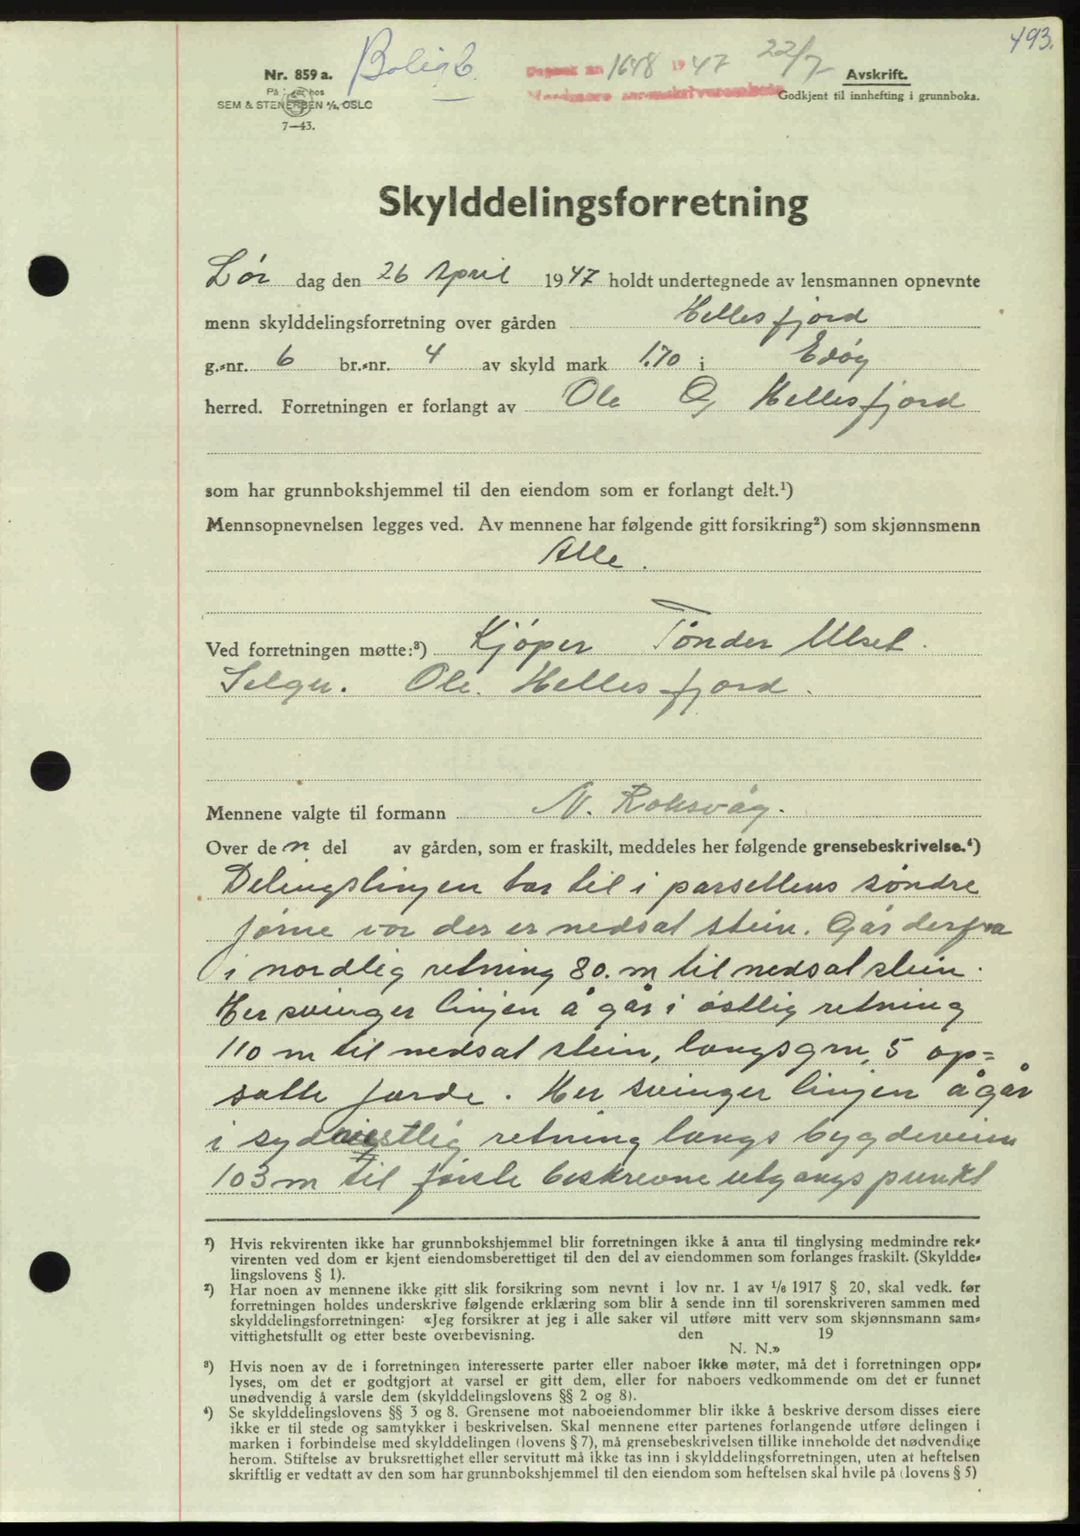 493.
Bolig L.
Nr. 859 a.
På hos
SEM & STENERSEN A/S, OSLO
7—43.
Dagbok nr. 1648 1947 22/7
Nordmøre sorenskriverembede
Avskrift.
Godkjent til innhefting i grunnboka.
Skylddelingsforretning
Lør dag den 26 April 1947 holdt undertegnede av lensmannen opnevnte
menn skylddelingsforretning over gården Hellesfjord
g.-nr. 6 br.-nr. 4 av skyld mark 1.70 i Edøy
herred. Forretningen er forlangt av Ole O Hellesfjord
som har grunnbokshjemmel til den eiendom som er forlangt delt.¹)
Mennsopnevnelsen legges ved. Av mennene har følgende gitt forsikring²) som skjønnsmenn
Alle.
Ved forretningen møtte:³) Kjöper Tönder Ulset.
Selger. Ole. Hellesfjord.
Mennene valgte til formann N. Roksvåg.
Over den del av gården, som er fraskilt, meddeles her følgende grensebeskrivelse.⁴)
Delingslinjen tar til i parsellens söndre
jörne vor der er nedsat stein. Går derfra
i nordlig retning 80. m til nedsat stein.
Her svinger linjen å går i östlig retning
110 m til nedsat stein, langs 5 op=
satte . Her svinger linjen å går
i sydvestlig retning langs bygdeveien
103 m til förste beskrevne utgangspunkt
¹) Hvis rekvirenten ikke har grunnbokshjemmel blir forretningen ikke å anta til tinglysing medmindre rek-
virenten ved dom er kjent eiendomsberettiget til den del av eiendommen som forlanges fraskilt. (Skyldde-
lingslovens § 1).
²) Har noen av mennene ikke gitt slik forsikring som nevnt i lov nr. 1 av 1/6 1917 § 20, skal vedk. før
forretningen holdes underskrive følgende erklæring som blir å sende inn til sorenskriveren sammen med
skylddelingsforretningen: «Jeg forsikrer at jeg i alle saker vil utføre mitt verv som skjønnsmann sam-
vittighetsfullt og etter beste overbevisning. den 19
N. N.»
³) Hvis noen av de i forretningen interesserte parter eller naboer ikke møter, må det i forretningen opp-
lyses, om det er godtgjort at varsel er gitt dem, eller for naboers vedkommende om det er funnet
unødvendig å varsle dem (skylddelingslovens §§ 2 og 8).
⁴) Se skylddelingslovens §§ 3 og 8. Grensene mot naboeiendommer blir ikke å beskrive dersom disses eiere
ikke er til stede og samtykker i beskrivelsen. Skal mennene etter partenes forlangende utføre delingen i
marken i forbindelse med skylddelingen (lovens § 7), må grensebeskrivelsen tillike inneholde det nødvendige
herom. Stiftelse av bruksrettighet eller servitutt må ikke tas inn i skylddelingsforretningen, uten at heftelsen
skriftlig er vedtatt av den som har grunnbokshjemmel til den eiendom som heftelsen skal hvile på (lovens § 5)